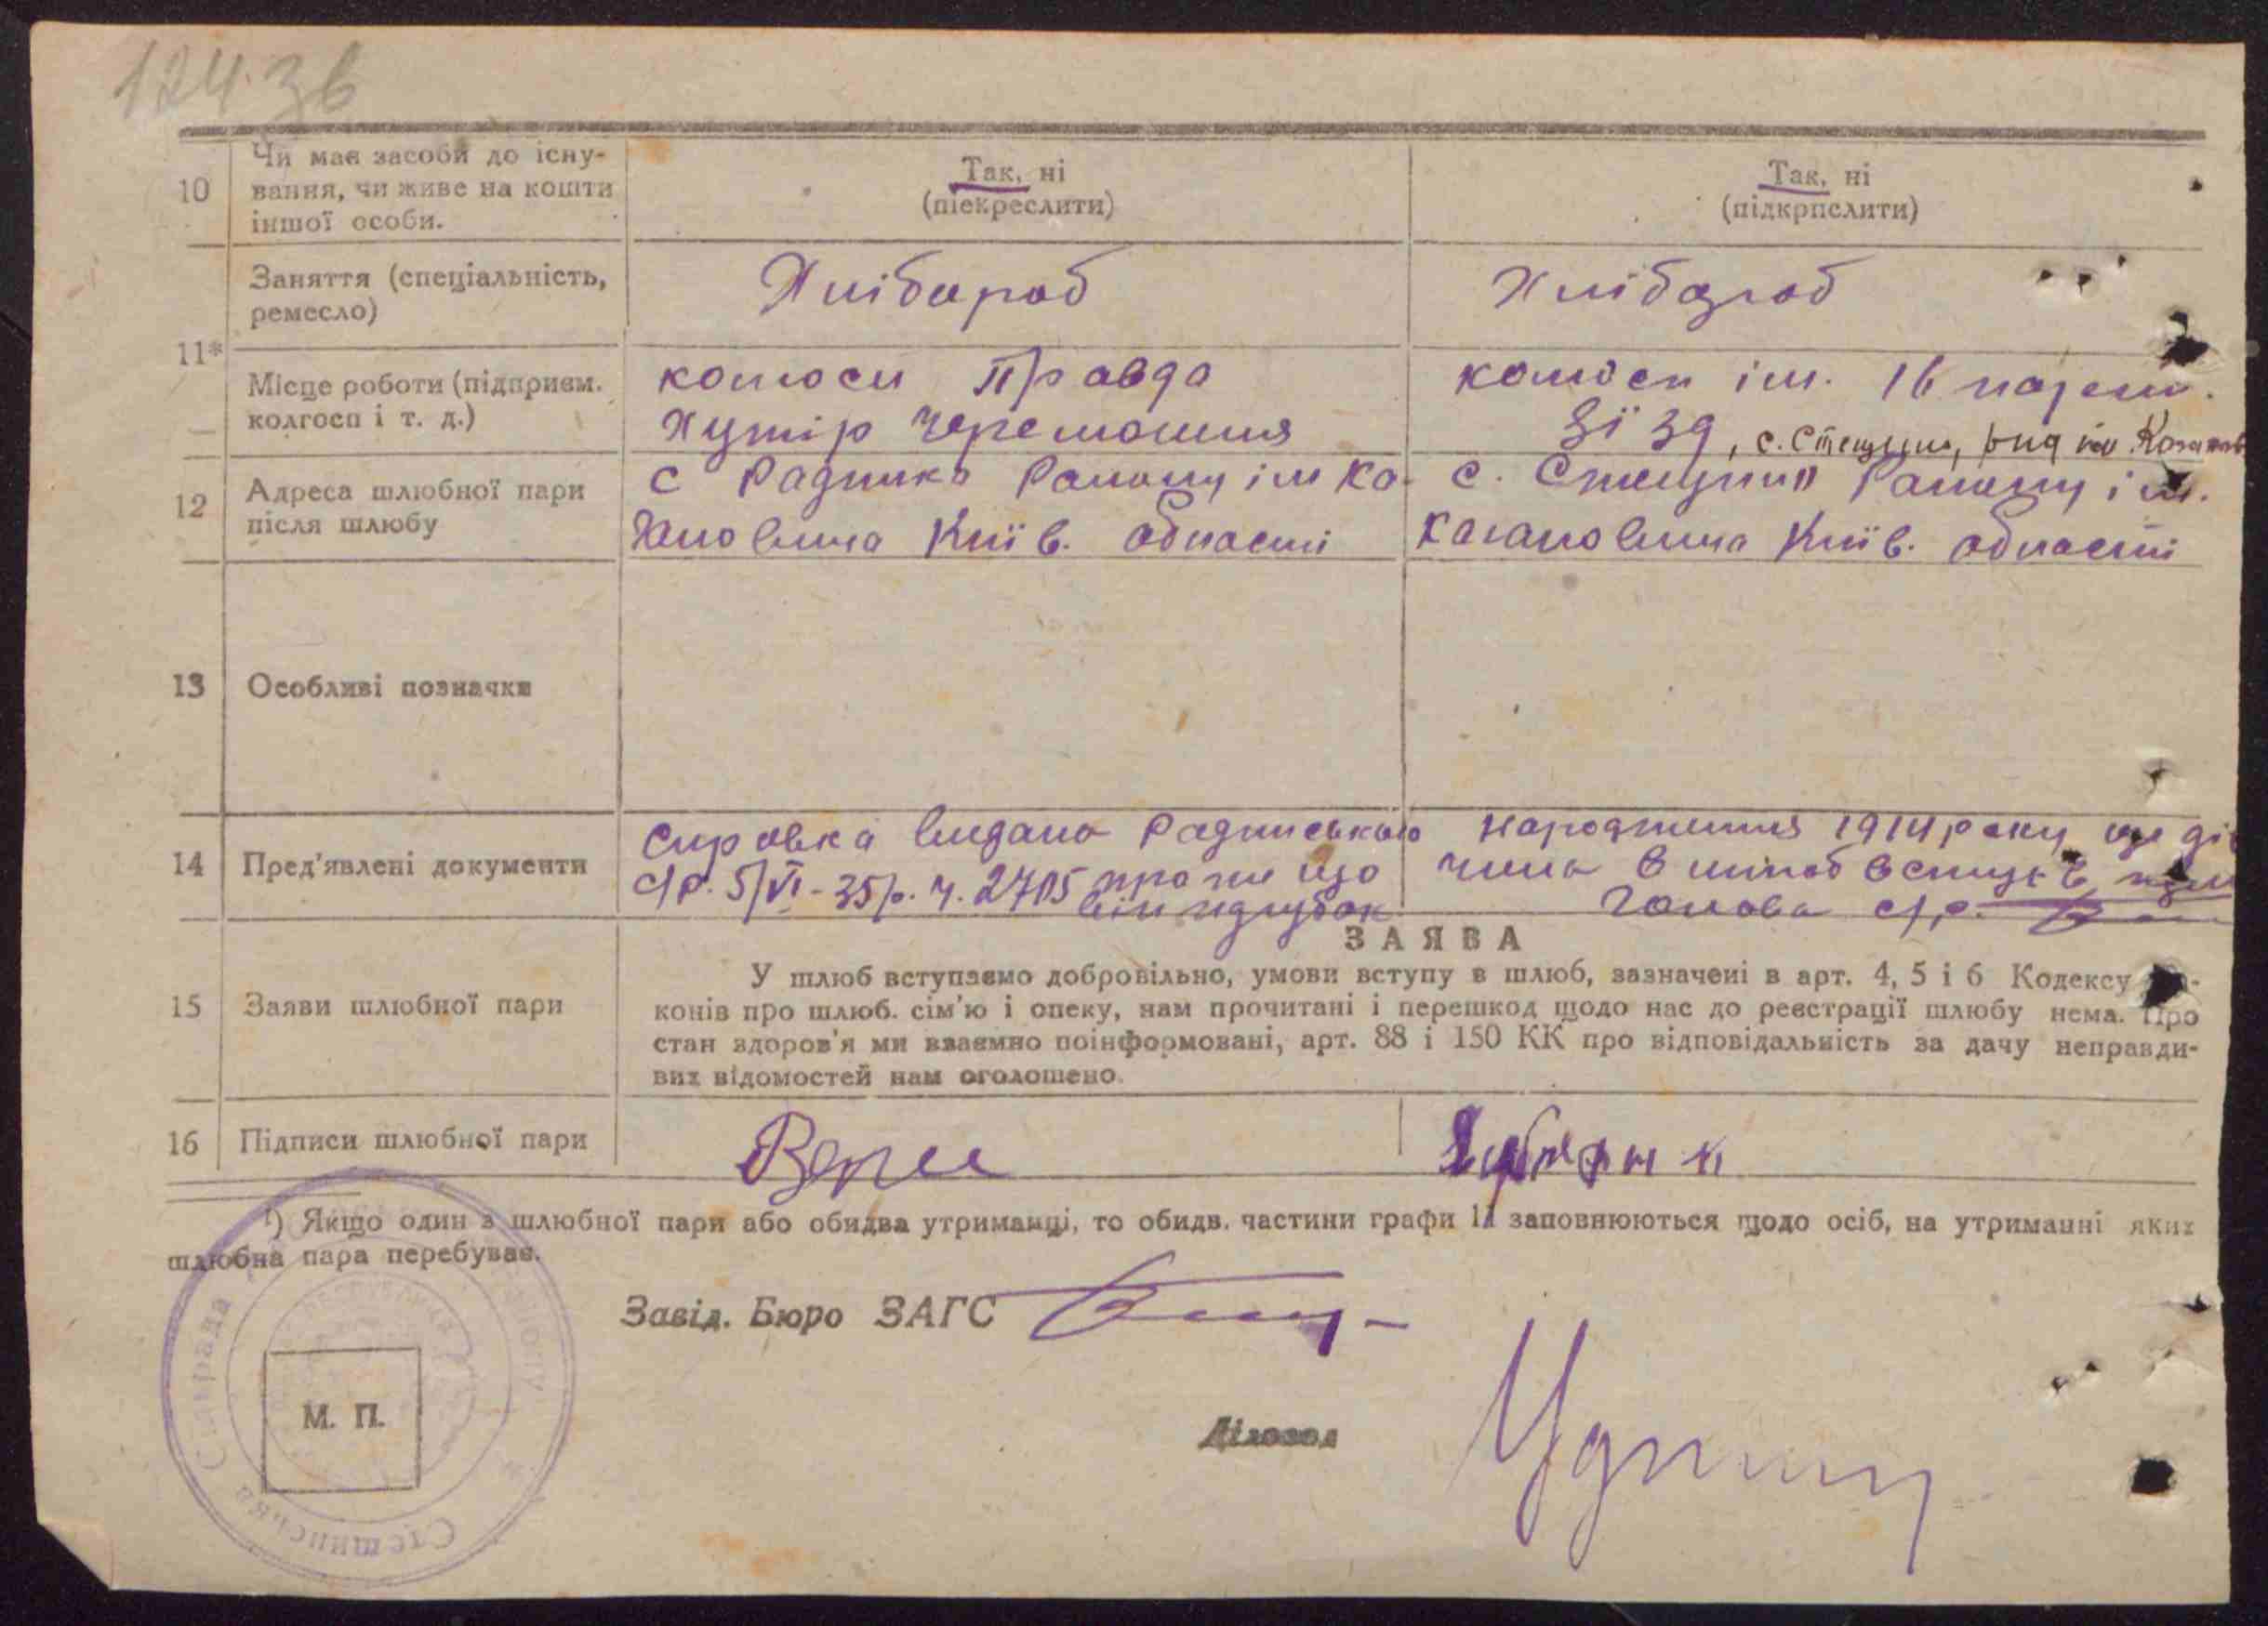 124 зв
10
Чи має засоби до існу-
вання, чи живе на кошти
іншої особи.
Так, ні
(піекреслити)
Так, ні
(підкрпслити)
11*
Заняття (специіальність,
ремесло)
Хлібороб
Хлібороб
Місце роботи (підприєм.
колгосп і т. д.)
колгосп Правда
Хутір Черемошня
колгосп ім. 16 парт.
Зїзд, с. Стещина,
12
Адреса шлюбної пари
після шлюбу
с Радинка Району ім Ка-
гановича Київ. області
с. Стещина Району ім.
Кагановича Київ. області
13
Особливі позначки
14
Пред'явлені документи
Справка видана Радинською
с/р. 5/VI-35р. ч. 2705 про те що
він парубок
народження 1914 року, що ді
чина в шлюб вступає
Голова с/р.
15
Заяви шлюбної пари
ЗАЯВА
У шлюб вступаємо добровільно, умови вступу в шлюб, зазначені в арт. 4, 5 і 6 Кодексу
конів про шлюб. сім'ю і опеку, нам прочитані і перешкод щодо нас до реєстрації шлюбу нема. Про
стан здоров'я ми взаємно поінформовані, арт. 88 і 150 КК про відповідальність за дачу неправди-
вих відомостей нам оголошено.
16
Підписи шлюбної пари
¹) Якщо один з шлюбної пари або обидва утриманці, то обидв. частини графи 11 заповнюються щодо осіб, на утриманні яких
шлюбна пара перебуває.
Завід. Бюро ЗАГС
М. П.
Діловод
Стещинська Сільрада